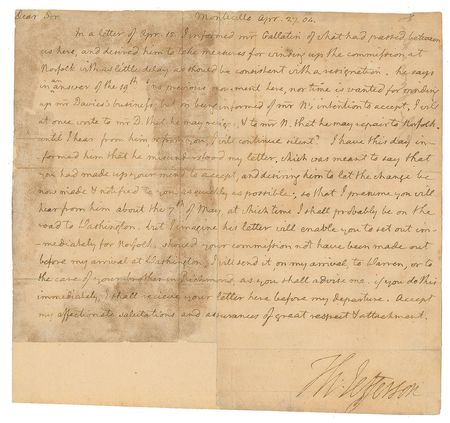 Dear Sir Monticello Apr. 27. 04.
In a letter of Apr. 15. I informed mr Gallatin of what had passed between
us here, and desired him to take measures for winding up the commission at
Norfolk with as little delay as should be consistent with a resignation. he says
in an answer of the 19th 'no previous movement here, nor time is wanted for winding
up mr Davies's business, but on being informed of mr N's intention to accept, I will
at once write to mr D. that he may resign, & to mr N. that he may repair to Norfolk.
until I hear from him or from you, I will continue silent.' I have this day in-
formed him that he misunderstood my letter, which was meant to say that
you had made up your mind to accept, and desiring him to let the change be
now made & notified to you as quickly as possible; so that I presume you will
hear from him about the 7th of May, at which time I shall probably be on the
road to Washington. but I imagine his letter will enable you to set out im-
-mediately for Norfolk. should your commission not have been made out
before my arrival at Washington, I will send it on my arrival to Warren, or to
the care of your brother in Richmond, as you shall advise me. if you do this
immediately, I shall recieve your letter here before my departure. Accept
my affectionate salutations and assurances of great respect & attachment.
Th: Jefferson